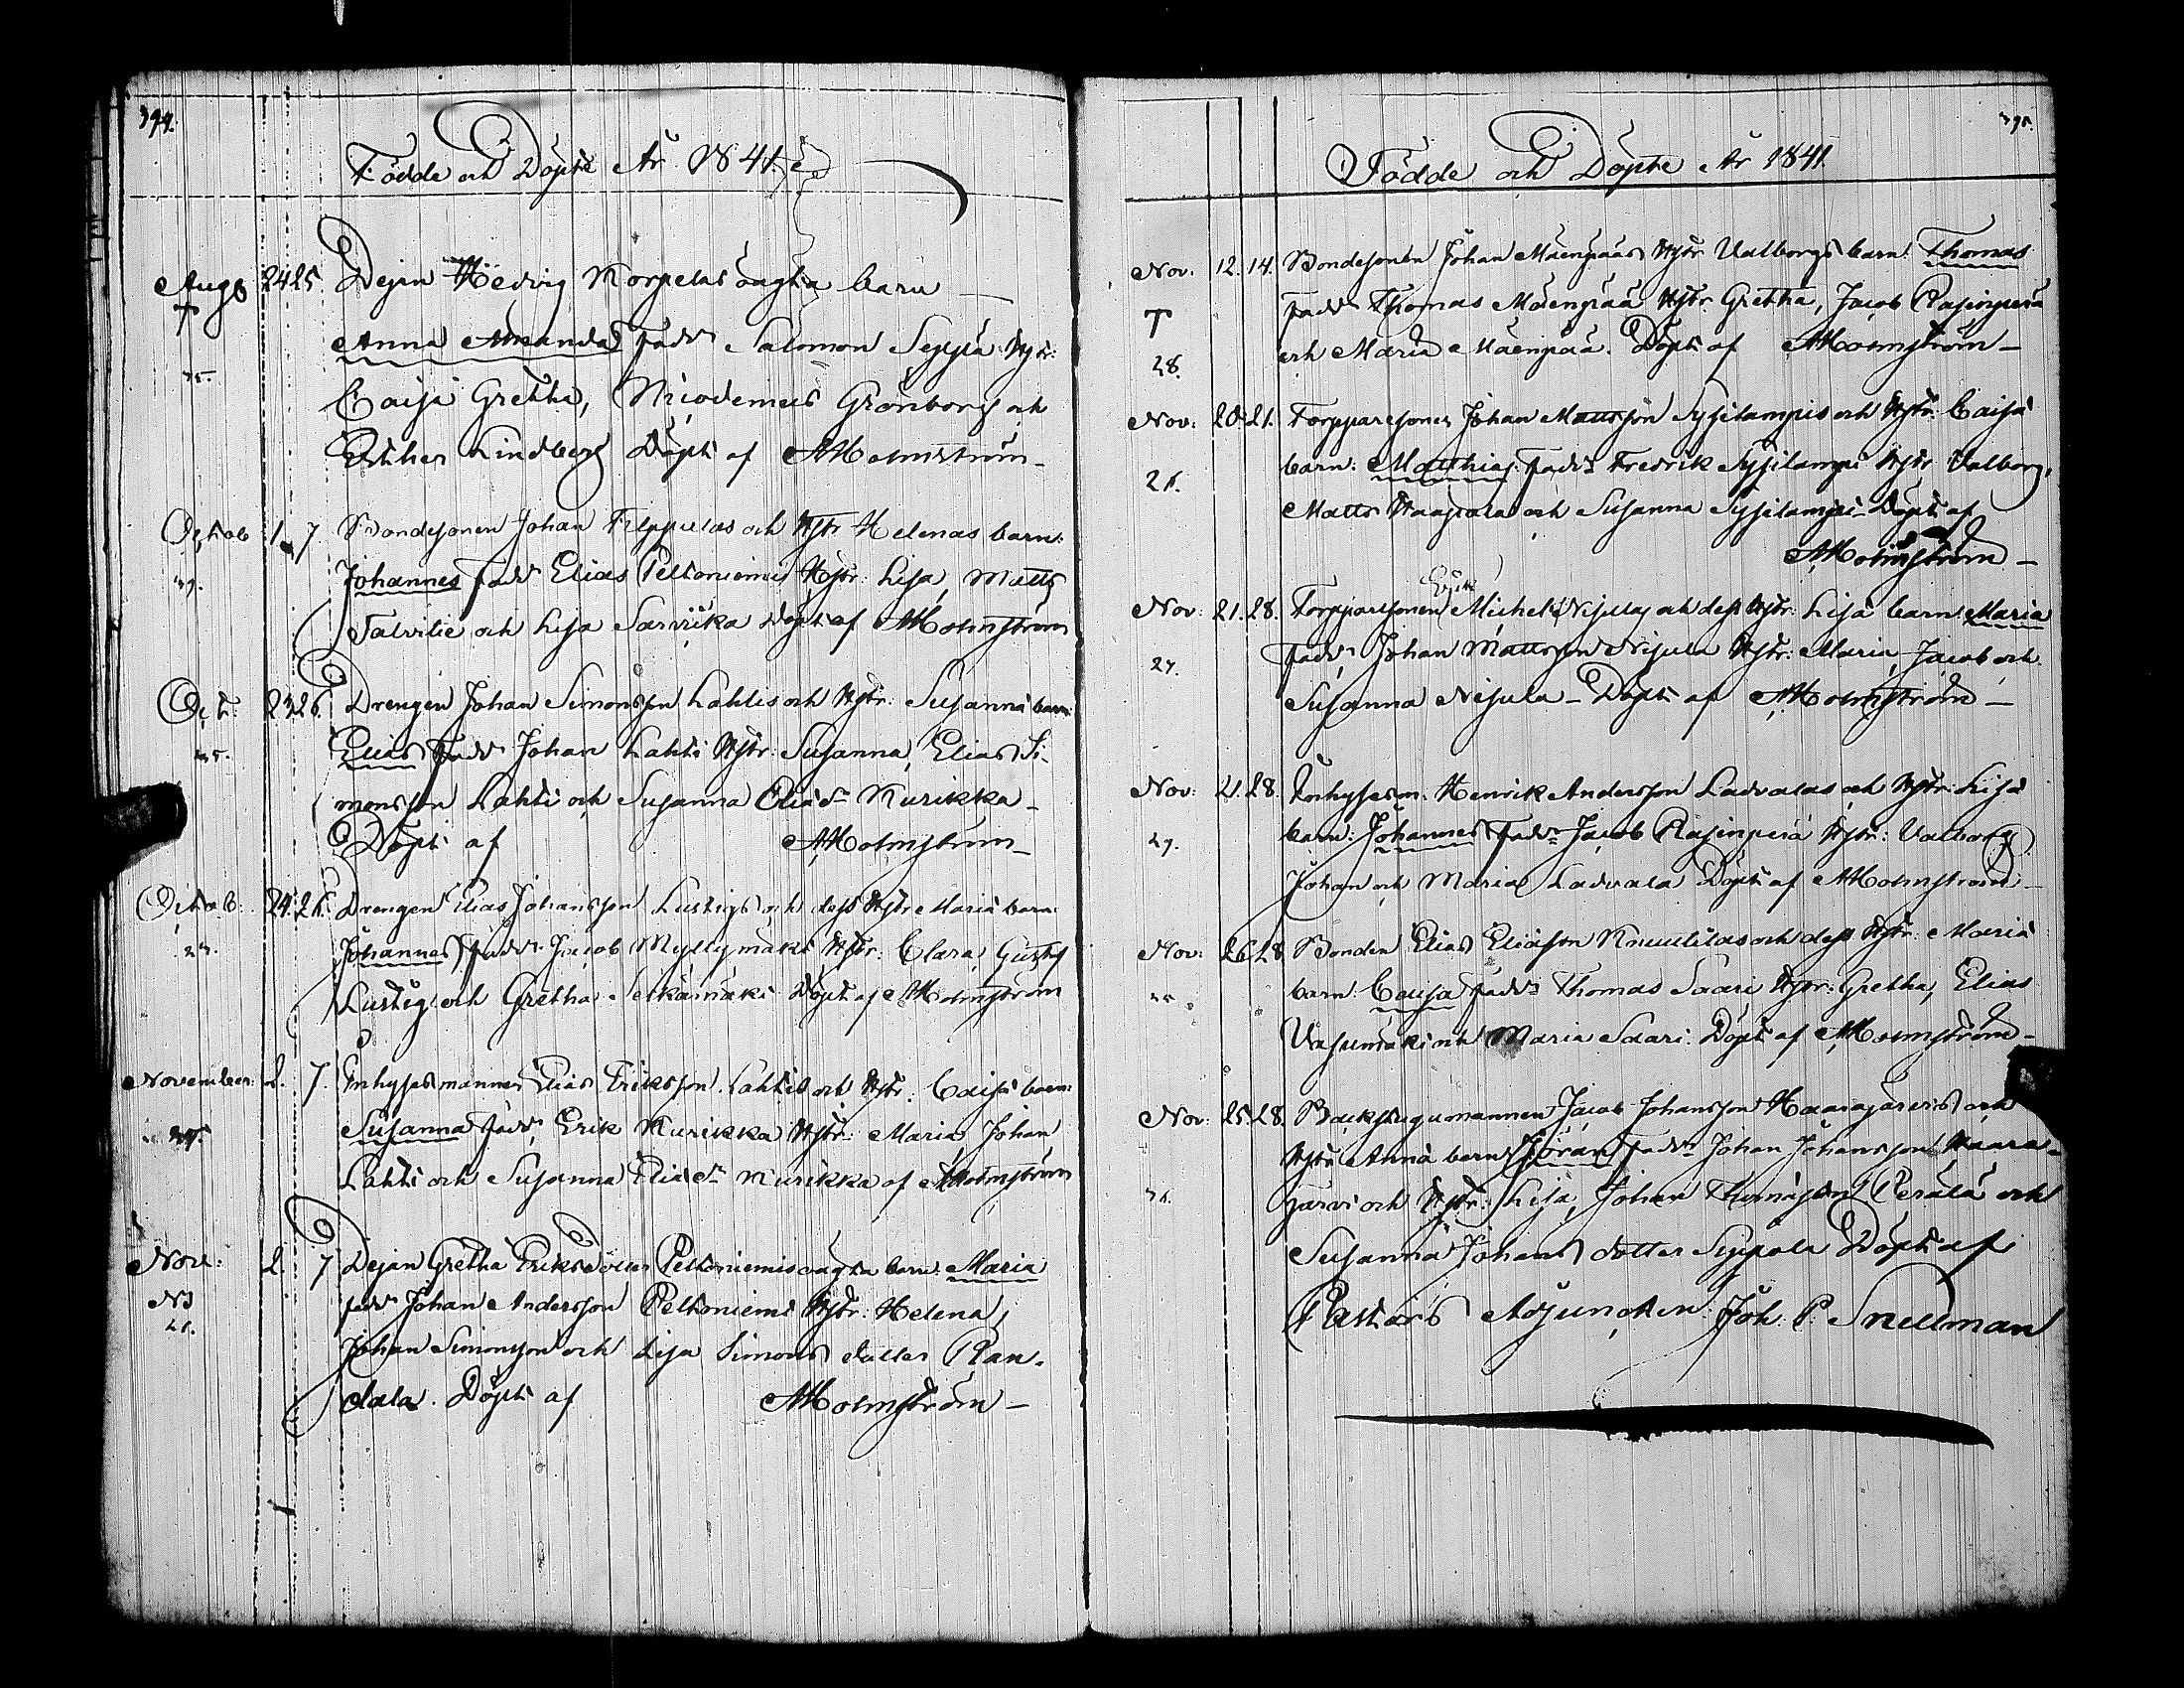 394.
Födde och Döpte År 1841.
Augs 24 25. Pejan Hedvig Korpelas oägta barn
Anna Amanda fadd: Salomon Seppä Hstr:
35. Caisa Gretha, Nicodemus Grönborg och
Esther Lindberg Döpt af AHolmström
Octob 1. 7. Bondesonen Johan Filppulas och Hstr Helenas barn:
39. Johannes fadd: Elias Peltoniemi Hstr: Lisa, Matts
Salvilie och Lisa Sarvikka Döpt af AHolmström
Oct: 23 26. Drengen Johan Simonsson Lahtis och Hstr: Susannä barn:
35. Elias fadd: Johan Lahti Hstr: Susanna, Elias Si-
monsson Lahti och Susanna Eliæ dr Kurikka
Döpt af AHolmström
Octob: 24. 26. Drengen Elias Johansson Lustigs och dess Hstr Mariä barn:
23. Johannes fadd: Jacob Myllymäki Hstr: Clara, Gustaf
Lustig och Gretha Selkämäki Döpt af AHolmström
November: 2. 7. Inhysesmannen Elias Eriksson Lahtis och Hstr: Caisä barn:
Susanna fadd: Erik Kurikka Hstr: Maria, Johan
Lahti och Susanna Eliæ dr Kurikka af AHolmström
Nov: 2. 7 Pejan Gretha Eriksdotter Peltoniemis oägta barn: Maria
fadd: Johan Andersson Peltoniemi Hstr: Helena,
21. Johan Simonsson och Lisa Simons dotter Ran-
dala. Döpt af AHolmström
395.
Födde och Döpte År 1841
Nov: 12. 14. Bondesonen Johan Mäenpääs Hstr Valborgs barn: Thomas
fadd: Thomas Mäenpää Hstr: Gretha, Jacob Rajinperä
28. och Maria Mäenpää. Döpt af AHolmström
Nov: 20 21. Torpparesonen Johan Mattsson Sysilampis och Hstr: Caisä
barn: Matthias fadd: Fredrik Sysilampi Hstr Valborg,
Matts Haapala och Susanna Sysilampi Döpt af
AHolmström
Nov: 21. 28. Torpparesonen Michel Nisulas och dess Hstr: Lisä barn: Maria
27. fadd: Johan Mattsson Nisula Hstr: Maria, Jacob och
Susanna Nisula Döpt af AHolmström
Nov: 21. 28. Inhysesm. Henrik Andersson Ladvalas och Hstr: Lisä
29. barn: Johannes fadd: Jacob Rajinperä Hstr: Valborg
Johan och Maria Ladvala Döpt af AHolmström
Nov: 26 28 Bonden Elias Eliasson Knuutilas och dess Hstr: Mariä
barn: Caisa fadd: Thomas Saari Hstr: Gretha, Elias
Vasumäki och Maria Saari. Döpt af AHolmström
Nov: 25. 28. Backstugumannen Jacob Johansson Haarajärvis och
Hstr Annä barn Jöran fadd: Johan Johansson Haara-
järvi och Hstr: Lisa, Johan Thomasson Perälä och
Susanna Johans dotter Seppälä Döpt af
Pastors Adjuncten Joh. P. Snellman